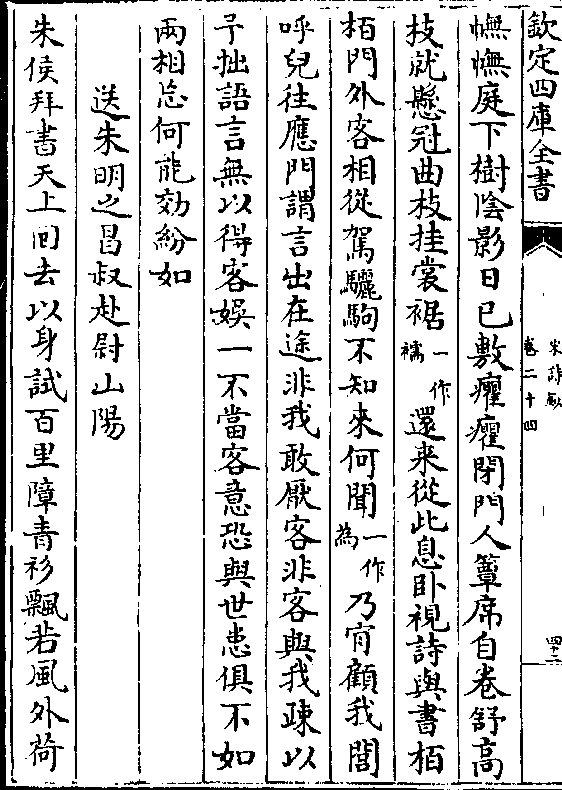 欽定四庫全書
宋詩鈔
卷二十四
四十二
憮憮庭下樹陰影日已敷癯癯閉門人簟席自卷舒高
技就懸冠曲枝挂裳裾一作襦還来從此息卧視詩與書栢
栢門外客相從駕驪駒不知来何聞一作為乃宵顧我閭
呼兒往應門謂言出在途非我敢厭客非客與我疎以
予拙語言無以得客娱一不當客意恐與世患俱不如
兩相忘何能効紛如
送朱明之昌叔赴尉山陽
朱侯拜書天上囘去以身試百里障青衫飄若風外荷